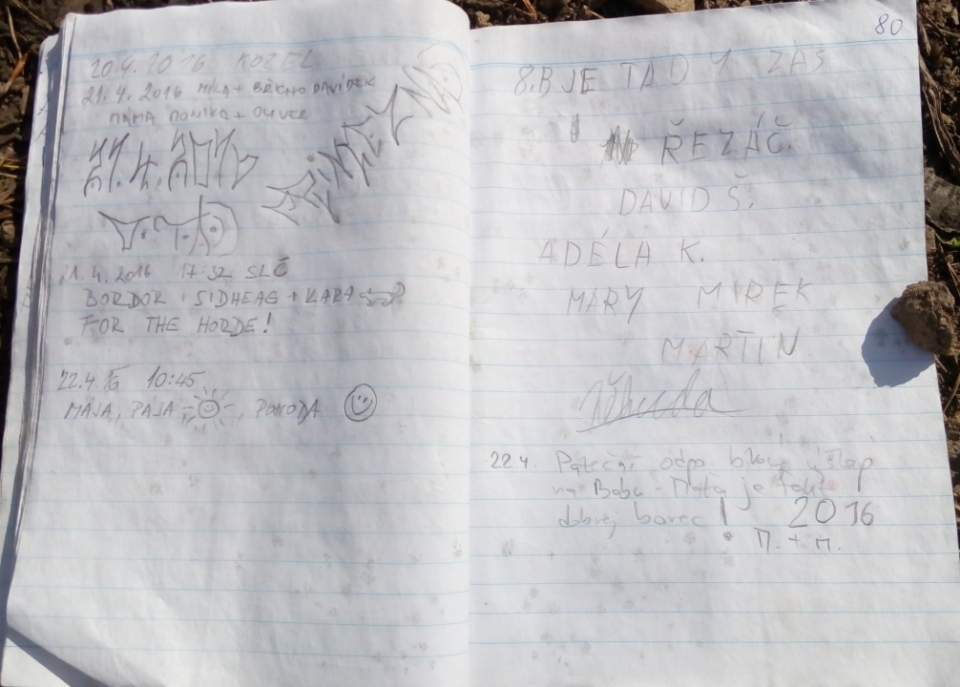 20.4.2016 KOZEL
21.4.2016 MÍŠA + BŘÍCHO DAVÍDEK
MÁMA MONIKA + OLIVER
21.4.2016
21.4.2016 17:32 SLČ
BORDOR + SIDHEAG + KARA
FOR THE HORDE!
22.4.16 10:45
MÁJA, PÁJA, POHODA
80
8.B JE TADY ZAS
ŘEZÁČ.
DAVID Š.
ADÉLA K.
MARY MIREK
MARTIN
22.4. Páteční odpo. bikový výšlap
na Babu - Máťa je fakt
dobrej borec! 2016
M. + M.